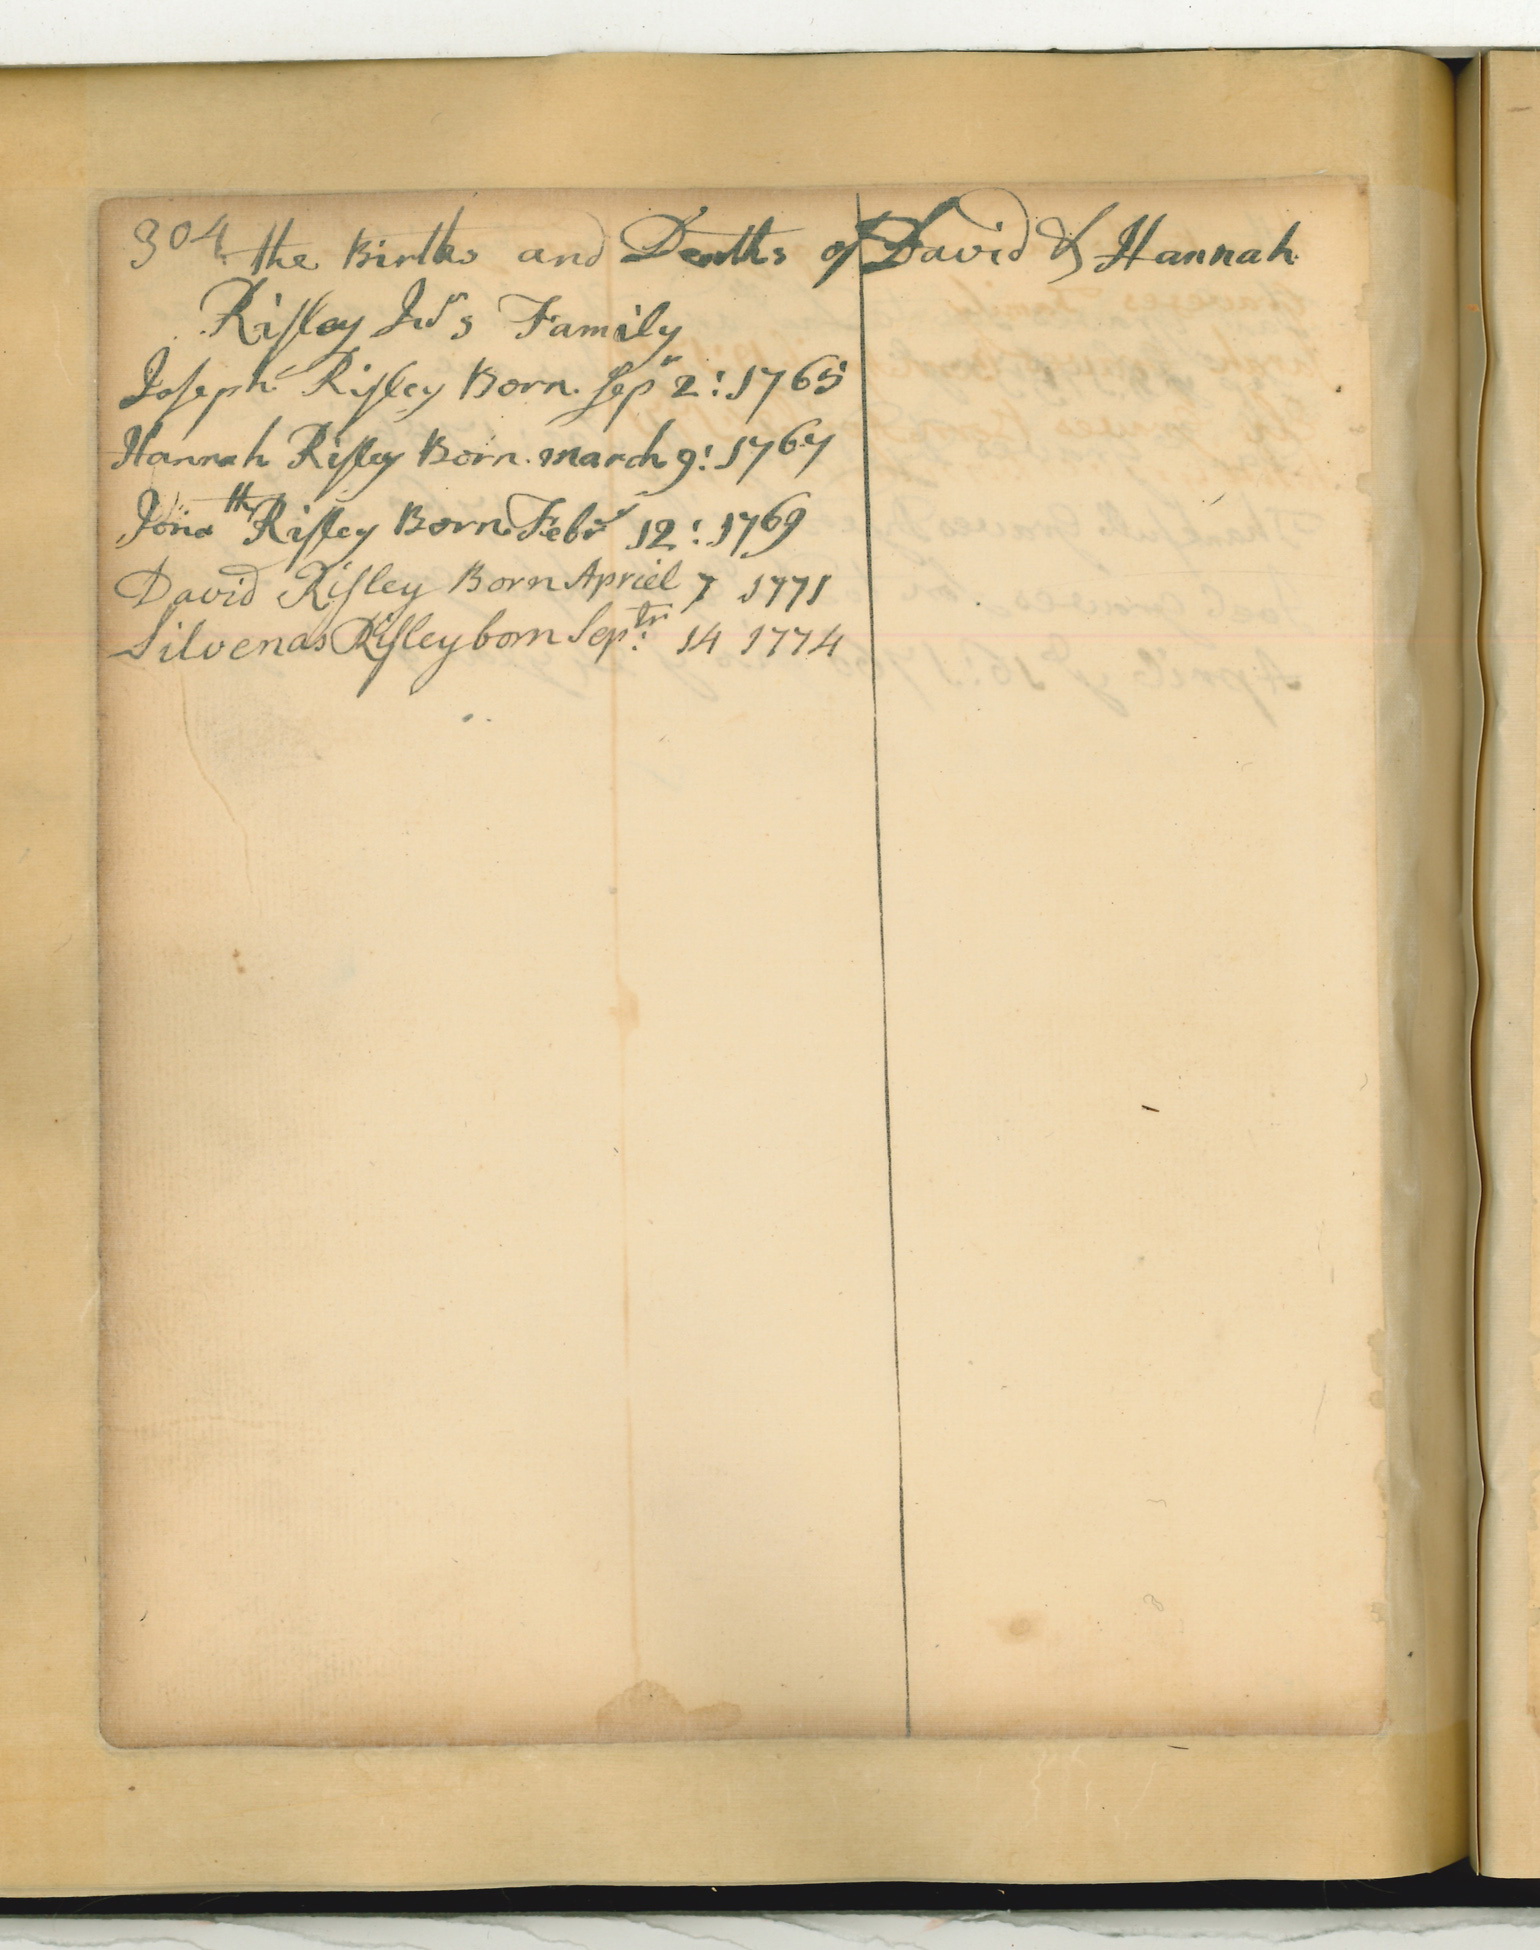 304 the Births and Deaths of David & Hannah
Risley Jurs Family
Joseph Risley Born Sepr 2: 1765
Hannah Risley Born march 9: 1767
Jonath Risley Born Febry 12: 1769
David Risley Born Apriel 7 1771
Silvenas Risley born Septr: 14 1774